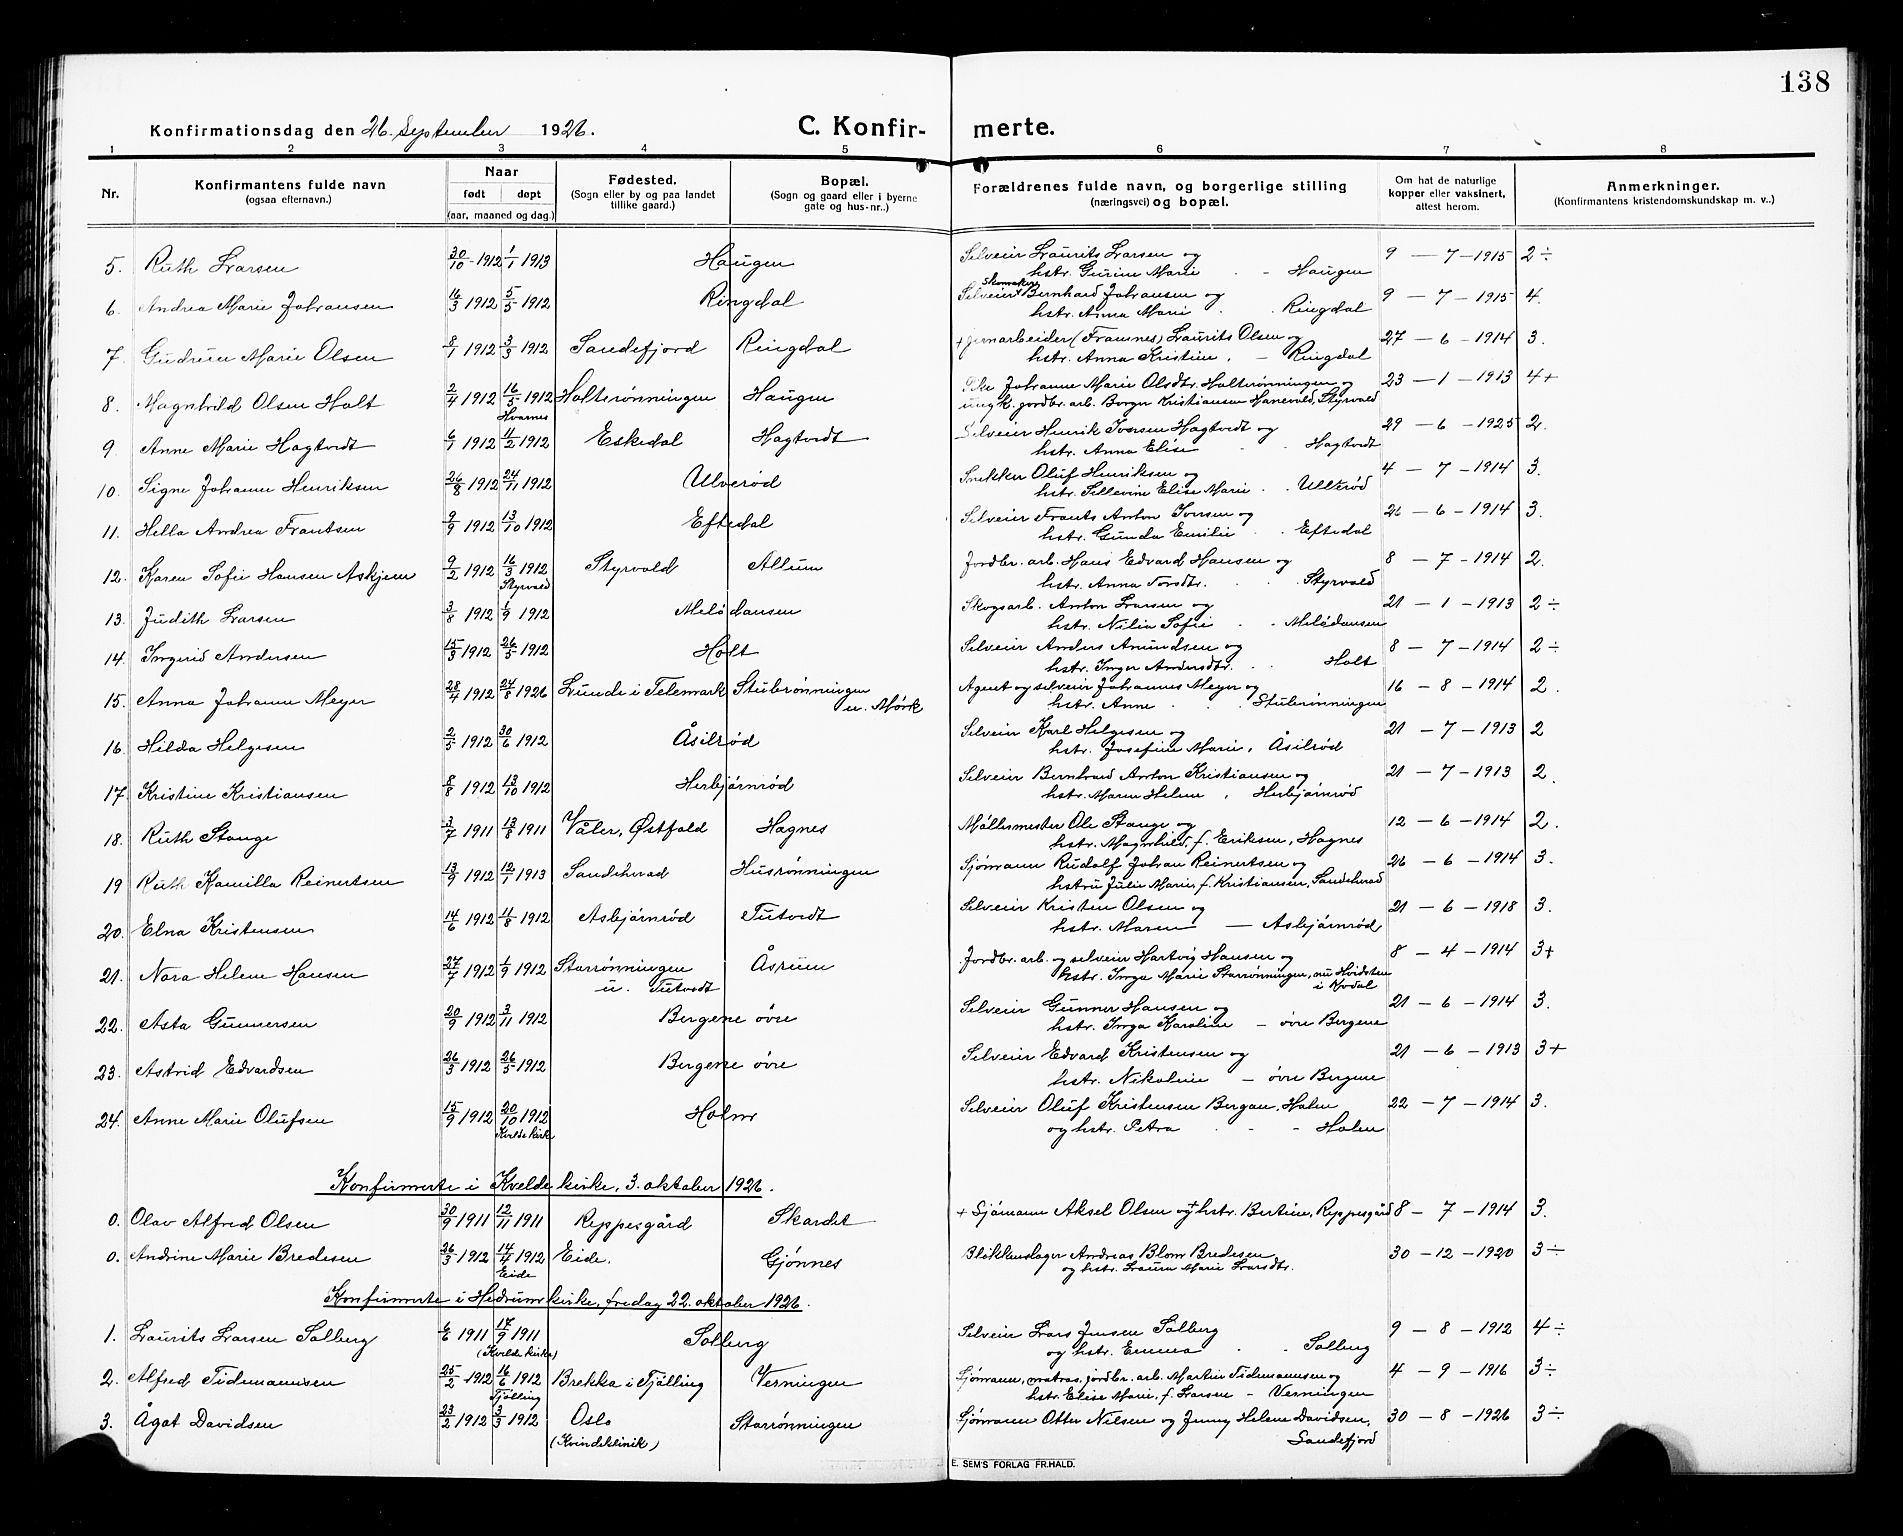 138
Konfirmationsdag den 26. September 1926.
C. Konfirmerte.
1 2 3 4 5 6 7 8
Nr.
Konfirmantens fulde navn
(ogsaa efternavn.)
Naar
født døpt
(aar, maaned og dag.)
Fødested.
(Sogn eller by og paa landet
tillike gaard.)
Bopæl.
(Sogn og gaard eller i byerne
gate og hus-nr..)
Forældrenes fulde navn, og borgerlige stilling
(næringsvei) og bopæl.
Om hat de naturlige
kopper eller vaksinert,
attest herom.
Anmerkninger.
(Konfirmantens kristendomskundskap m. v..)
5. Ruth Larsen 30/10 - 1912 1/1 1913 Haugen Selveier Laurits Larsen og 9 - 7 - 1915 2÷
hstr. Gurine Marie - Haugen
6. Andrea Marie Johansen 16/3 1912 5/5 1912 Ringdal Selveier Skomaker Bernhard Johansen og 9 - 7 - 1915 4.
hstr. Anna Marie Ringdal
7. Gudrun Marie Olsen 8/1 1912 3/3 1912 Sandefjord Ringdal + jernarbeider (Framnes) Laurits Olsen og 27 - 6 - 1914 3.
hstr. Anna Kristine, - Ringdal
8. Magnhild Olsen Holt 2/4 1912 16/5 1912 Holtsrønningen Haugen Pike Johanne Marie Olsdtr. Holtsrønningen og 23 - 1 - 1913 4+
Hvarnes ungk. jordbr. arb. Borger Kristiansen Hanevold, Styrvold
9. Anne Marie Hagtvedt 6/1 1912 11/2 1912 Eskedal Hagtvedt Selveier Henrik Iversen Hagtvedt og 29 - 6 - 1925 2.
hstr. Anna Elise Hagtvedt
10. Signe Johanne Henriksen 26/8 1912 24/11 1912 Ulverød Snekker Oluf Henriksen og 4 - 7 - 1914 3.
hstr. Sellevine Elise Marie Ullerød
11. Hella Andrea Frantsen 9/9 1912 13/10 1912 Eftedal Selveier Frants Anton Iversen og 21 - 6 - 1914 3.
hstr. Gunda Emilie Eftedal
12. Karen Sofie Hansen Askjem 9/2 1912 16/3 1912 Styrvold Allum Jordbr. arb. Hans Edvard Hansen og 8 - 7 - 1914 2.
Styrvold hstr. Anna Torsdtr. Styrvold
13. Judith Larsen 3/8 1912 1/9 1912 Melödansen Skogsarb. Anton Larsen og 21 - 1 - 1913 2÷
hstr. Nilia Sofie - Melödansen
14. Ingerid Andersen 15/3 1912 26/5 1912 Holt Selveier Anders Amundsen og 8 - 7 - 1914 2÷
hstr. Inger Andersdtr. Holt
15. Anna Johanne Meyer 28/4 1912 24/8 1926 Lunde i Telemark Stubrønningen Agent og selveier Johannes Meyer og 16 - 8 - 1914 2.
u. Mørk hstr. Anne Stubrønningen
16. Hilda Helgesen 2/5 1912 30/6 1912 Åsilrød Selveier Karl Helgesen og 21 - 7 - 1913 2
hstr. Josefine Marie, Åsilrød
17. Kristine Kristiansen 8/8 1912 13/10 1912 Herbjørnrød Selveier Bernhard Anton Kristiansen og 21 - 7 - 1913 2.
hstr. Maren Helene, Herbjørnrød
18. Ruth Stange 3/7 1911 13/8 1911 Våler, Østfold Hagnes Møllermester Ole Stange og 12 - 6 - 1914 2.
hstr. Magnhild, f. Eriksen, Hagnes
19 Ruth Kamilla Reinertsen 13/9 1912 12/1 1913 Sandeherad Husrønningen Sjømann Rudolf Johan Reinertsen og 26 - 6 - 1914 3.
hstru Julie Marie, f. Kristiansen, Sandeherad
20. Elna Kristensen 14/6 1912 11/8 1912 Asbjørnrød Tutvedt Selveier Kristen Olsen og 21 - 6 - 1918 3.
hstr. Maren - Asbjørnrød
21. Nora Helene Hansen 27/7 1912 1/9 1912 Starrønningen Åsrum Jordbr. arb. og selveier Hartvig Hansen og 8 - 4 - 1914 3+
u. Tutvedt hstr. Inga Marie Starrønningen, nu Hvidsten
i Kodal
22. Asta Gunnersen 20/9 1912 3/11 1912 Bergene øvre Selveier Gunner Hansen og 21 - 6 - 1914 3.
hstr. Inga Karoline - øvre Bergene
23. Astrid Edvardsen 26/3 1912 26/5 1912 Bergene øvre Selveier Edvard Kristensen og 21 - 6 - 1913 3+
hstr. Nikoline - øvre Bergene
24. Anne Marie Olufsen 15/9 1912 20/10 1912 Holm Selveier Oluf Kristensen Bergan, Holm 22 - 7 - 1914 3.
Kvelde kirk og hstr. Petra - Holm
Konfirmerte i Kvelde kirke, 3. oktober 1926.
0. Olav Alfred Olsen 30/9 1911 12/11 1911 Reppesgård Skardet + Sjømann Aksel Olsen og + hstr. Bertine, Reppesgård 8 - 7 - 1914 3.
0. Andrine Marie Bredesen 26/3 1912 14/4 1912 Eide. Gjønnes Blikkenslager Andreas Blom Bredesen 30 - 12 - 1920 3÷
Eide og hstr. Laura Marie Larsdtr.
Konfirmerte i Hedrum kirke, fredag 22. oktober 1926.
1. Laurits Larsen Solberg 6/6 1911 17/9 1911 Solberg Selveier Lars Jensen Solberg 9 - 8 - 1912 4÷
(Kvelde kirke) og hstr. Emma Solberg
2. Alfred Tidemannsen 25/2 1912 16/6 1912 Brekka i Tjølling Verningen Sjømann, matros, jordbr. arb. Martin Tidemannsen og 4 - 9 - 1916 3÷
Tjølling hstr. Elise Marie, f. Larsen - Verningen
3. Ågot Davidsen 23/2 1912 3/3 1912 Oslo Starrønningen Sjømann Otter Nilsen og Jenny Helene Davidsen, 30 - 8 - 1926 3÷
(Kvindeklinik) Sandefjord
E. SEM'S FORLAG FR.HALD.